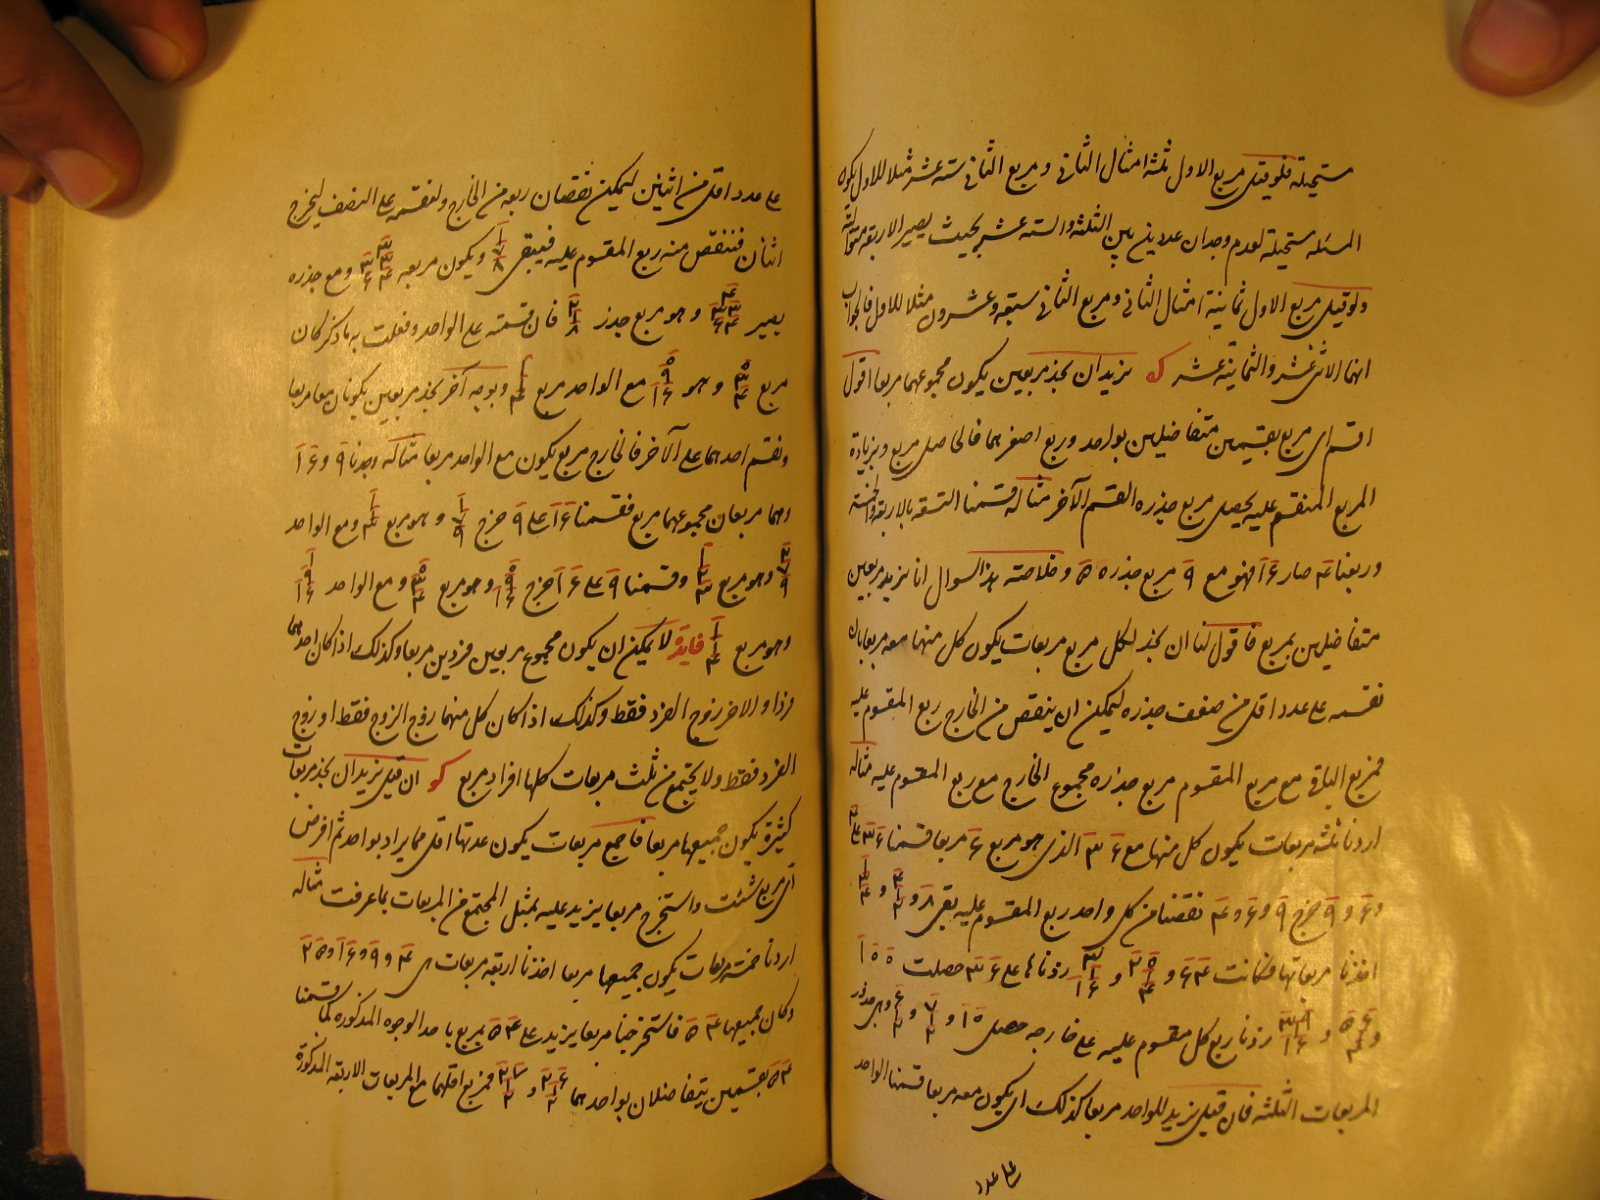 مستحيلة فلو قيل مربع الاول ثلثة امثال الثاني و مربع الثاني ستة عشر مثلا للاول يكون
المسئلة مستحيلة لعدم وجدان عددين بين الثلثة والستة عشر بحيث يصير الاربعة متوالية
ولو قيل مربع الاول ثمانية امثال الثاني و مربع الثاني سبعة وعشرون مثلا للاول فالجواب
انهما الاثنى عشر والثمانية عشر كه نريد ان نجد مربعين يكون مجموعهما مربعا اقول
اقسم اى مربع بقسمين متفاضلين بواحد وربع اصغرهما فالحاصل مربع وبزيادة
المربع المنقسم عليه يحصل مربع جذره القسم الآخر مثاله قسمنا التسعة بالاربعة والخمسة
وربعنا ۴ صار ۱۶ فهو مع ۹ مربع جذره ۵ وخلاصة هذا السوال انا نزيد مربعين
متفاضلين بمربع فاقول لنا ان نجد لكل مربع مربعات يكون كل منها معه مربعا بان
نقسمه على عدد اقل من ضعف جذره ليمكن ان ينقص من الخارج ربع المقسوم عليه
فمربع الباقى مع مربع المقسوم مربع جذره مجموع الخارج مع ربع المقسوم عليه مثاله
اردنا ثلثة مربعات يكون كل منها مع ۳۶ الذى هو مربع ۶ مربعا قسمنا ۳۶ على ۴
و ۶ و ۹ خرج ۹ و ۶ و ۴ نقصنا من كل واحد ربع المقسوم عليه بقى ۸ و
اخذنا مربعاتها فكانت ۶۴ و زدناها على ۳۶ حصلت ۱۰۰
و زدنا ربع كل مقسوم عليه على خارجه حصل ۱۰ و وهى جذور
المربعات الثلثة فان قيل نريد للواحد مربعا كذلك اى يكون معه مربعا قسمنا الواحد
على عدد
على عدد اقل من اثنين ليمكن نقصان ربعه من الخارج ولنقسمه على النصف ليخرج
اثنان فننقص منه ربع المقسوم عليه فيبقى ۱ ۷ ۸ ويكون مربعه ۳ ۳۳ ۶۴ ومع جذره
يصير ۴ ۳۳ ۶۴ وهو مربع جذر ۲ ۱ ۸ فان قسمته على الواحد وفعلت به ما ذكر كان
مربع ۳ ۴ وهو ۹ ۱۶ مع الواحد مربع ۱ ۱ ۴ وبوجه آخر نجد مربعين يكونان معا مربعا
ونقسم احدهما على الآخر فالخارج مربع يكون مع الواحد مربعا مثاله وجدنا ۹ و ۱۶
وهما مربعان مجموعهما مربع فقسمنا ۱۶ على ۹ خرج ۱ ۷ ۹ وهو مربع ومع الواحد
۲ ۷ ۹ وهو مربع وقسمنا ۹ على ۱۶ خرج ۹ ۱۶ وهو مربع ۳ ۴ ومع الواحد ۱ ۹ ۱۶
وهو مربع ۱ ۱ ۴ فايدة لا يمكن ان يكون مجموع مربعين فردين مربعا وكذلك اذا كان احدهما
فردا والاخر زوج الفرد فقط وكذلك اذا كان كل منهما زوج الزوج فقط او زوج
الفرد فقط ولا يجتمع من ثلث مربعات كلها افراد مربع كو ان قيل نريد ان نجد مربعات
كثيرة يكون جميعها مربعا فاجمع مربعات يكون عدتها اقل مما يراد بواحد ثم افرض
اى مربع شئت واستخرج مربعا يزيد عليه بمثل المجتمع من المربعات بما عرفت مثاله
اردنا خمسة مربعات يكون جميعها مربعا اخذنا اربعة مربعات هى ۴ و ۹ و ۱۶ و ۲۵
وكان جميعها ۵۴ فاستخرجنا مربعا يزيد على ۵۴ بمربع باحد الوجوه المذكورة كما قسمنا
۵۴ بقسمين يتفاضلان بواحد هما ۲۶ ۱ ۲ و ۲۷ ۱ ۲ فمربع اقلهما مع المربعات الاربعة المذكورة